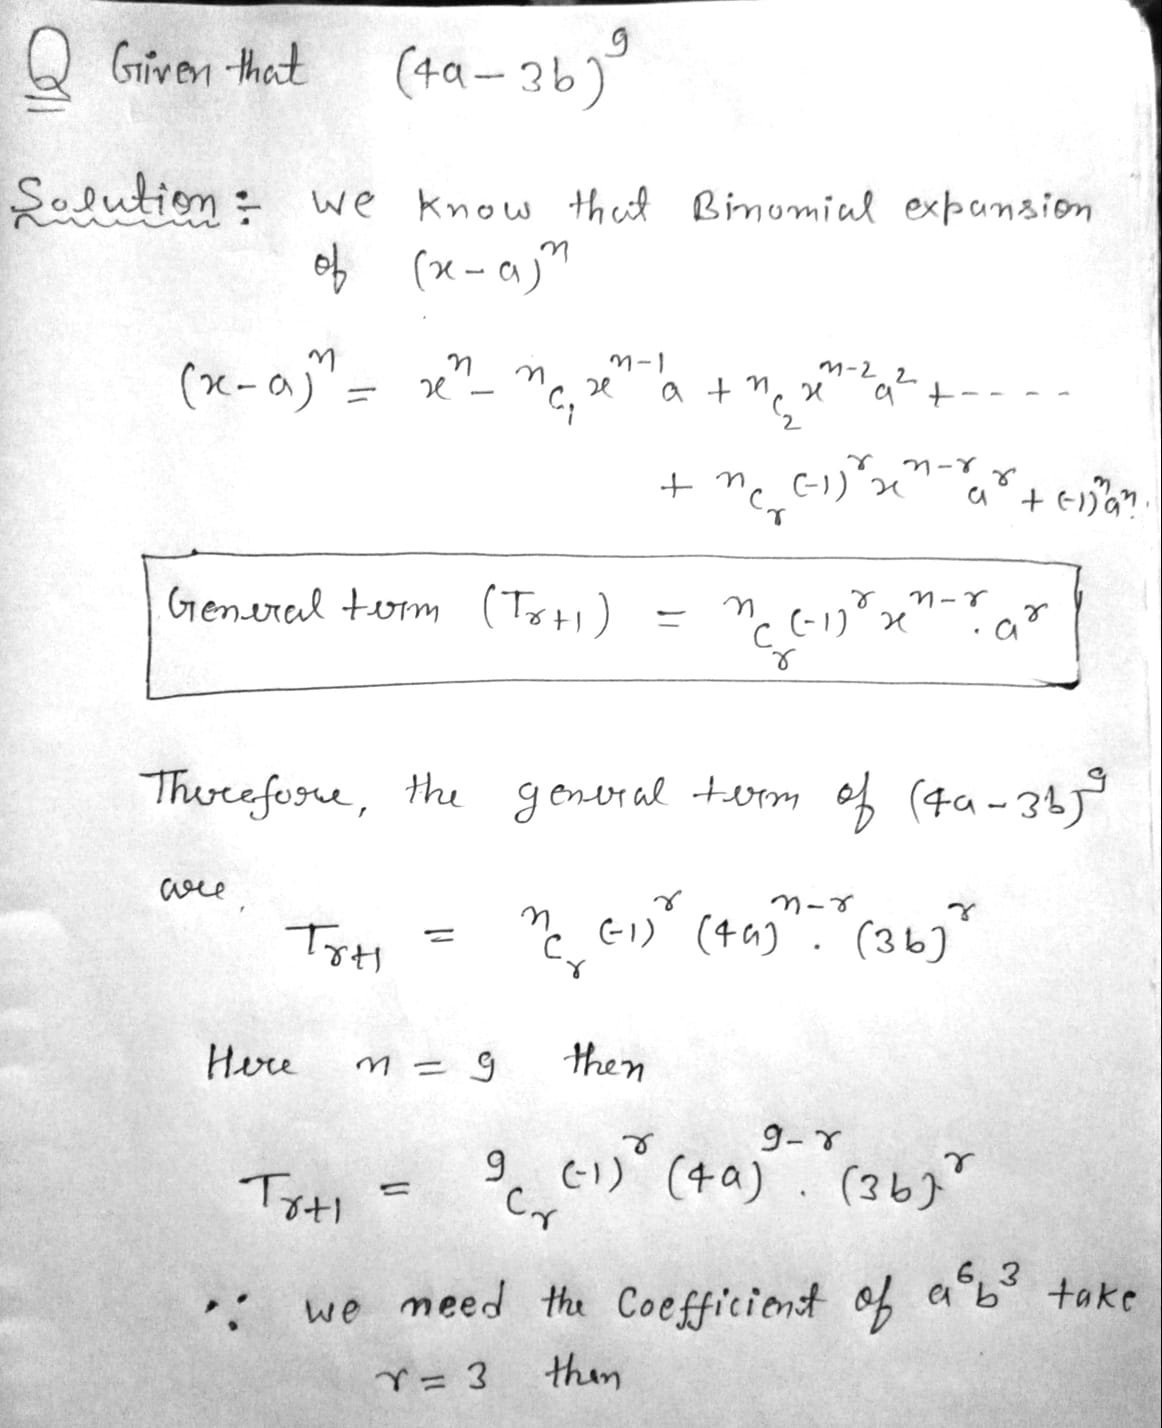 Q Given that (4a-3b)^9
Solution: we know that Binomial expansion
of (x-a)^n
(x-a)^n = x^n - nC_1 x^{n-1} a + nC_2 x^{n-2} a^2 + -----
+ nC_r (-1)^r x^{n-r} a^r + (-1)^n a^n.
General term (T_{r+1}) = nC_r (-1)^r x^{n-r} . a^r
Therefore, the general term of (4a-3b)^9
are,
T_{r+1} = nC_r (-1)^r (4a)^{n-r} . (3b)^r
Here n = 9 then
T_{r+1} = 9C_r (-1)^r (4a)^{9-r} . (3b)^r
∵ we need the Coefficient of a^6b^3 take
r = 3 then